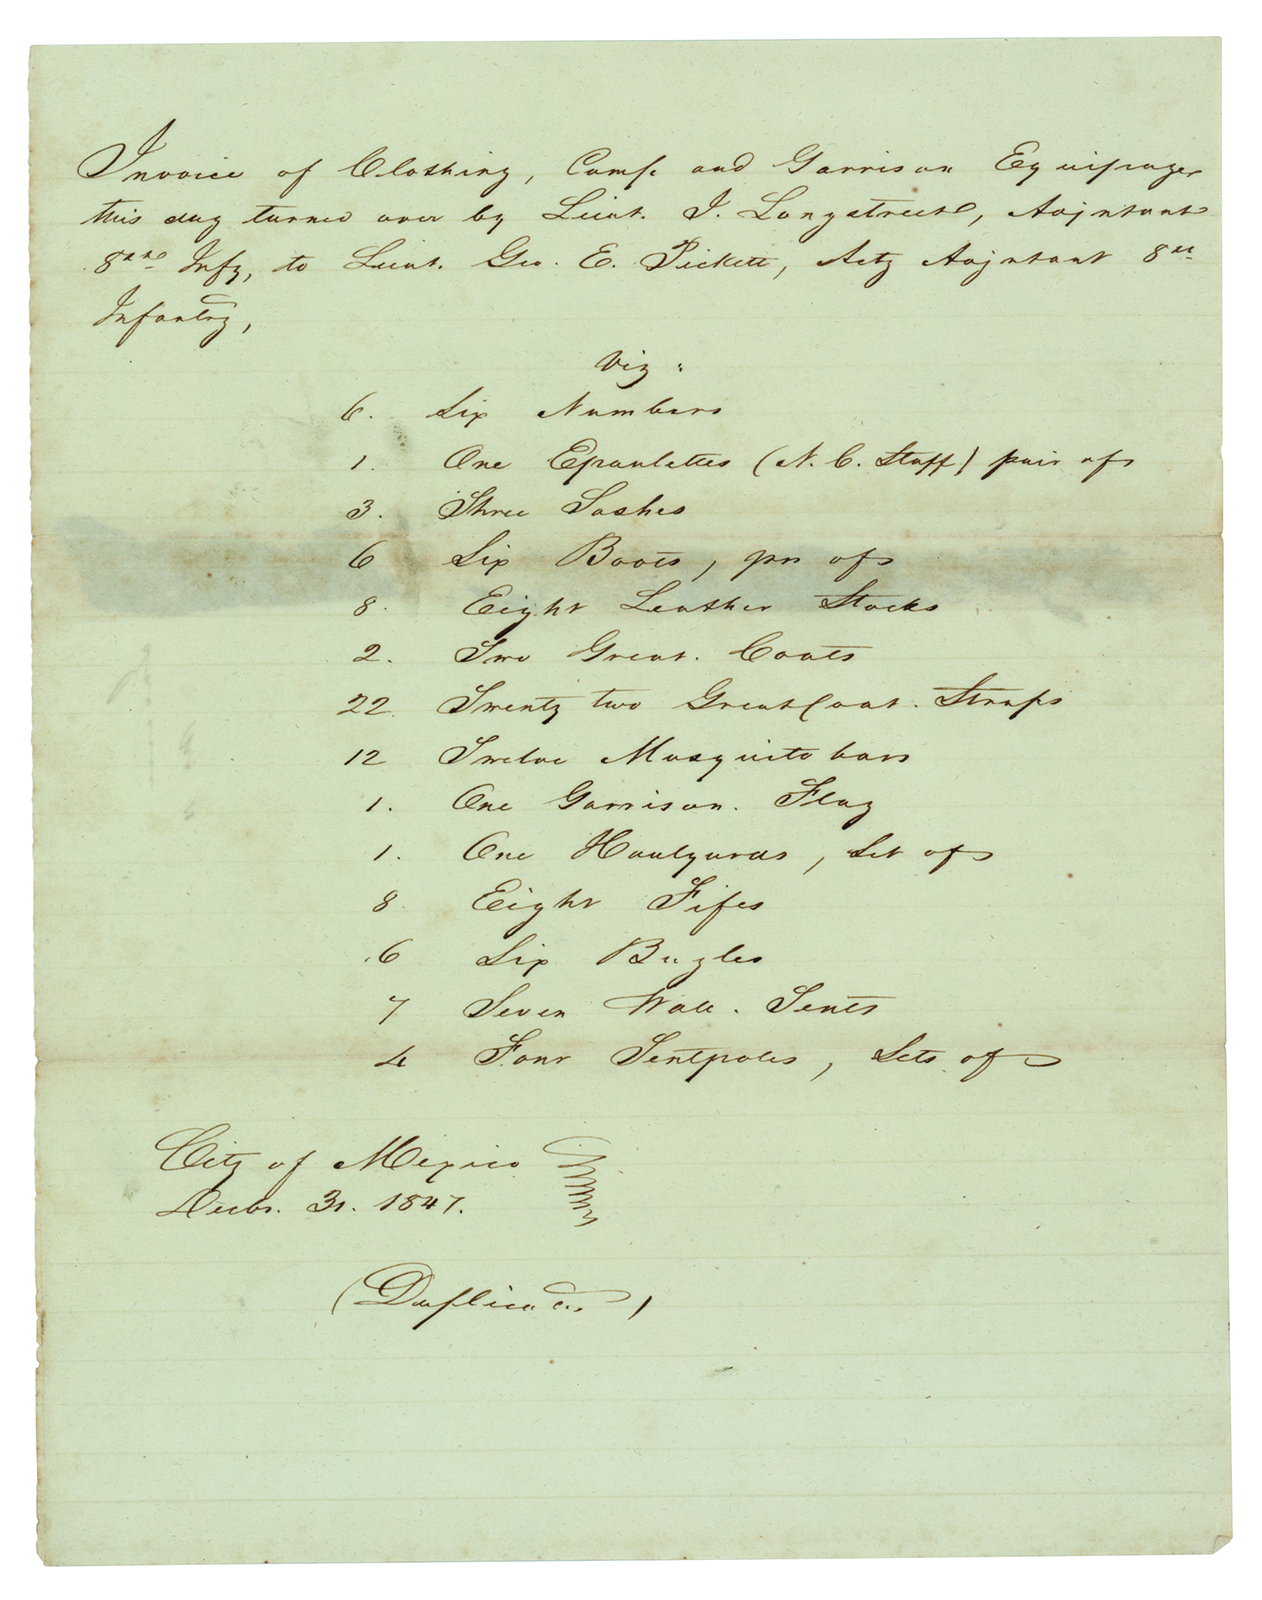 Invoice of Clothing, Camp and Garrison Equipage,
this day turned over by Lieut. J. Longstreet, Adjutant
8th Infy, to Lieut. Geo. E. Pickett, Actg Adjutant 8th
Infantry,
Viz:
6. Six Numbers
1. One Epaulettes (N. C. Staff) pair of
3. Three Sashes
6 Six Boots, prs of
8. Eight Leather Stocks
2. Two Great. Coats
22. Twenty two Great Coat. Straps
12 Twelve Mosquito bars
1. One Garrison. Flag
1. One Haulyards, Set of
8 Eight Fifes
6 Six Bugles
7 Seven Wall. Tents
4 Four Tentpoles, Sets of
City of Mexico
Decbr. 31. 1847.
(Duplicate)